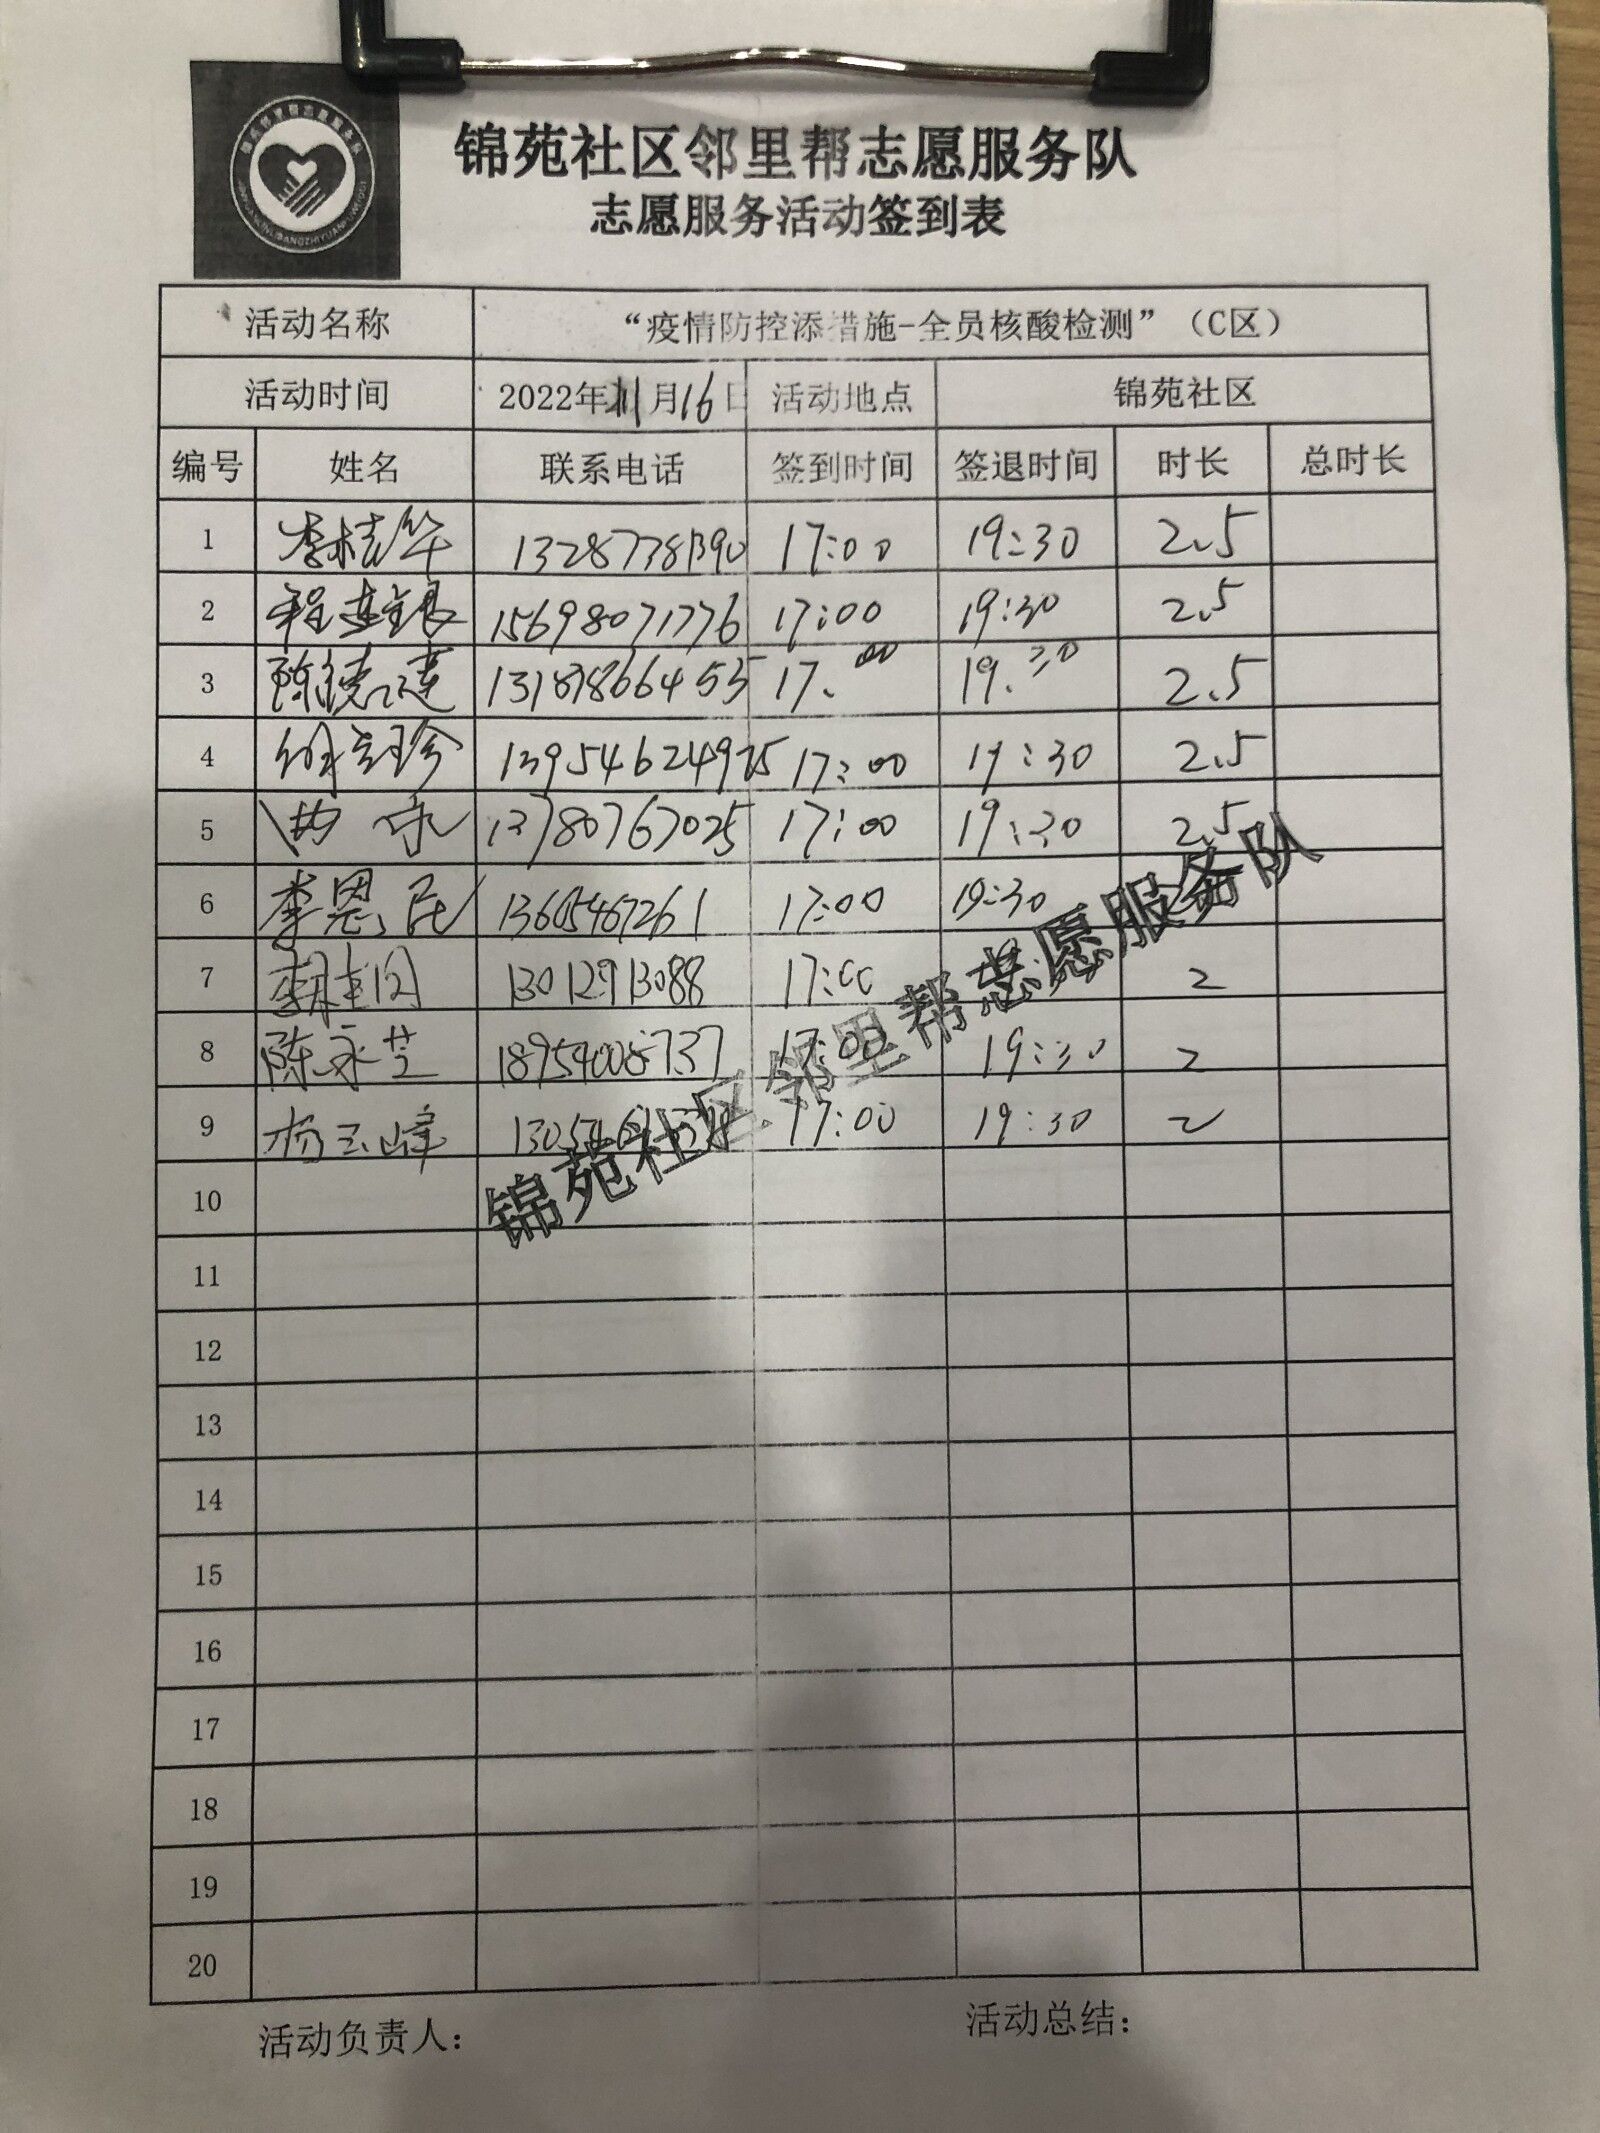 锦苑社区邻里帮志愿服务队
志愿服务活动签到表
活动名称 “疫情防控添措施-全员核酸检测”（C区）
活动时间 2022年11月16日 活动地点 锦苑社区
编号 姓名 联系电话 签到时间 签退时间 时长 总时长
1 李桂华 17:00 19:30 2.5
2 15698071776 17:00 19:30 2.5
3 陈德建 17.00 19.30 2.5
4 17:00 19:30 2.5
5 13780767025 17:00 19:30 2.5
6 李恩民 13605467261 17:00 19:30
7 13012913088 17:00 2
8 陈永芝 18954008737 17:00 19:30 2
9 杨玉峰 17:00 19:30 2
锦苑社区邻里帮志愿服务队
10
11
12
13
14
15
16
17
18
19
20
活动负责人： 活动总结：